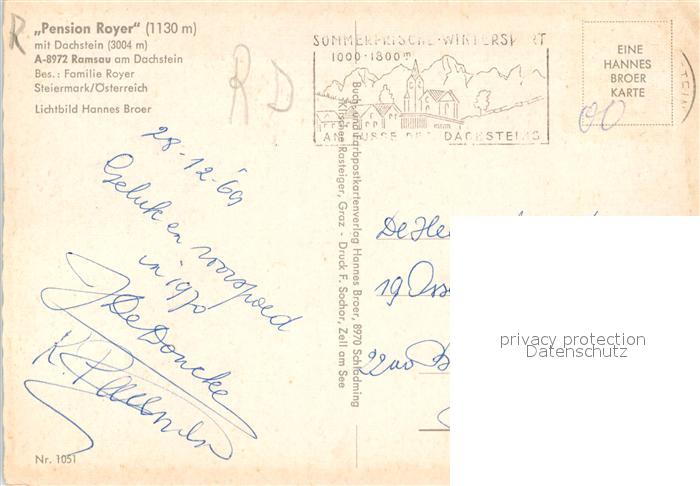 „Pension Royer“ (1130 m)
mit Dachstein (3004 m)
A-8972 Ramsau am Dachstein
Bes.: Familie Royer
Steiermark/Österreich
Lichtbild Hannes Broer
R
R D
SOMMERFRISCHE-WINTERSPORT
1000-1800m
AM FUSSE DES DACHSTEINS
EINE
HANNES
BROER
KARTE
00
28-12-69
Geluk en voorspoed
in 1970
J DeDoncke
K.
Buch- und Farbpostkartenverlag Hannes Broer, 8970 Schladming
Klischee Rasteiger, Graz - Druck F. Sochor, Zell am See
De
19
2200 B
privacy protection
Datenschutz
Nr. 1051